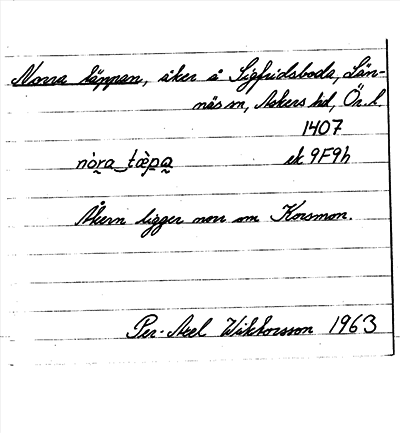 Norra täppan, åker å Sigfridsboda, Län-
näs sn, Askers hd, Ör. l.
1407
nòra tæ̀pa ek 9F9h
Åkern ligger norr om Korsmon.
Per-Axel Wiktorsson 1963